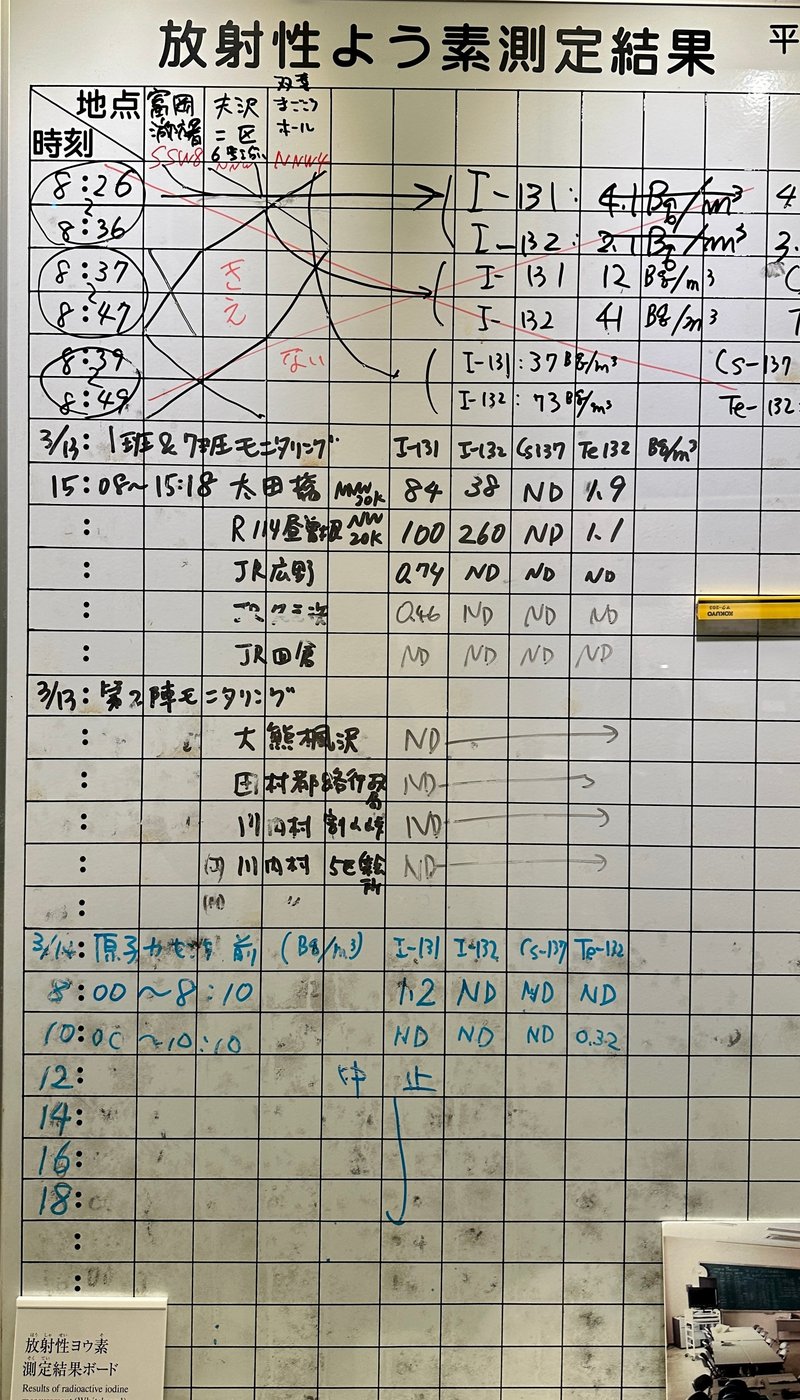 放射性よう素測定結果 平
地点
時刻
富岡
消防署
SSW8
夫沢
二区
双葉
まごころ
ホール
NNW4
8:26
～
8:36
I-131: 4.1 Bq/m³ 4
I-132: 2.1 Bq/m³ 3.
8:37
～
8:47
きえ
I-131 12 Bq/m³
I-132 41 Bq/m³
8:39
～
8:49
ない
I-131: 37 Bq/m³ Cs-137
I-132: 73 Bq/m³ Te-132
3/13: 1班&7班モニタリング I-131 I-132 Cs137 Te132 Bq/m³
15:08～15:18 太田橋 NNW 20K 84 38 ND 1.9
: R114昼曽根 NW 20K 100 260 ND 1.1
: JR広野 0.74 ND ND ND
: 0.46 ND ND ND
: JR ND ND ND ND
3/13: 第2陣モニタリング
: 大熊 ND →
: 田村郡 行政局 ND →
: 川内村 割山峠 ND →
: 川内村 ND →
: 〃
3/14: 原子力センター前 (Bq/m³) I-131 I-132 Cs-137 Te-132
8:00～8:10 1.2 ND ND ND
10:00～10:10 ND ND ND 0.32
12: 中止
14:
16:
18:
:
:
KOKUYO
ほうしゃせい そ
放射性ヨウ素
そくていけっか
測定結果ボード
Results of radioactive iodine